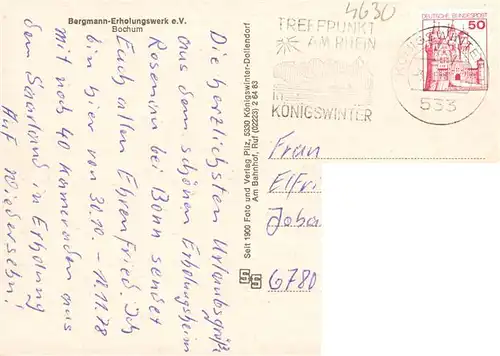 Bergmann-Erholungswerk e.V.
Bochum
Die herzlichsten Urlaubsgrüße
aus dem schönen Erholungsheim
bei Bonn sendet
Euch allen Ehrenfried. Ich
bin hier von 30.10. - 11.11.78
mit noch 40 Kameraden aus
dem Saarland in Erholung
Auf Wiedersehn!
Seit 1900 Foto und Verlag Pilz, 5330 Königswinter-Dollendorf
Am Bahnhof, Ruf (02223) 2 64 83
4630
TREFFPUNKT
AM RHEIN
IN
KÖNIGSWINTER
KÖNIGSWINTER
533
DEUTSCHE BUNDESPOST
50
Frau
Elfri
6780